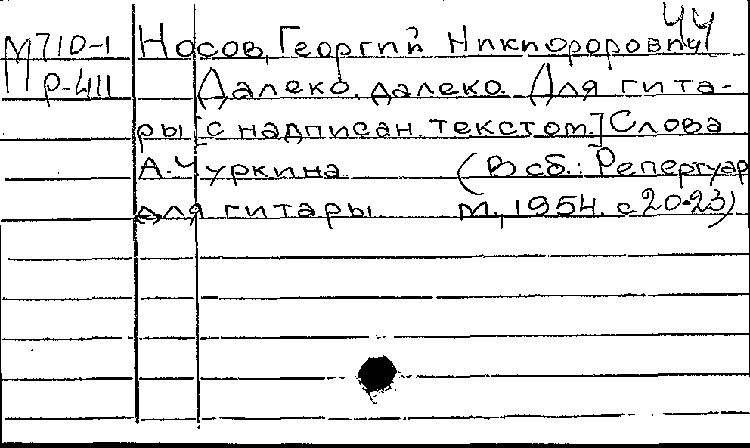 44
М710-1 Носов, Георгий Никифорович
Р-411 Далеко, далеко. Для гита-
ры [с надписан. текстом.] Слова
А. Чуркина (В сб.: Репертуар
для гитары М., 1954. с 20-23)